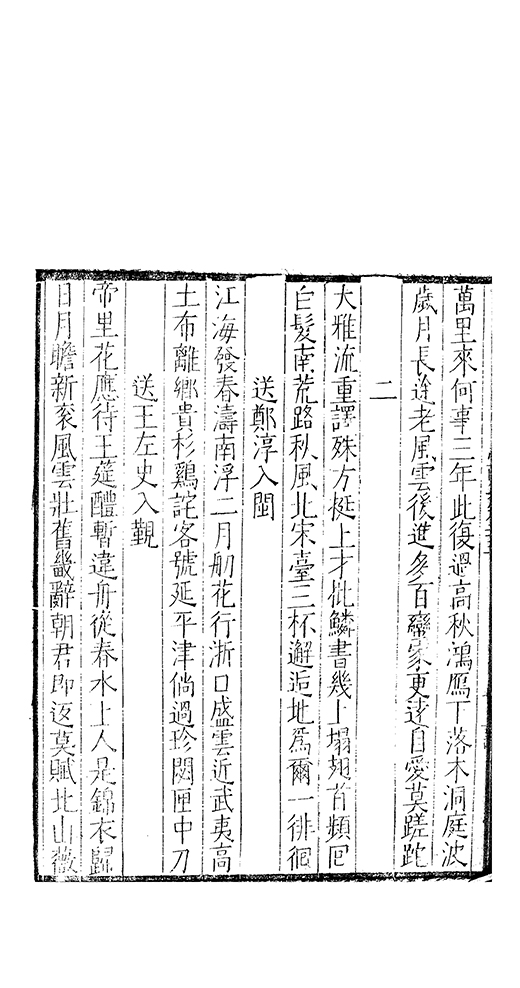 萬里來何事三年此復過高秋鴻鴈下落木洞庭波
歲月長途老風雲後進多百蠻家更遠自愛莫蹉跎
二
大雅流重譯殊方挺上才批鱗書幾上塌翅首頻回
白髮南荒路秋風北宋臺三杯邂逅地爲爾一徘徊
送鄭淳入閩
江海發春濤南浮二月舠花行浙口盛雲近武夷高
土布離鄉貴杉鷄詫客號延平津倘過珍閟匣中刀
送王左史入覲
帝里花應待王筵醴暫違舟從春水上人是錦衣歸
日月瞻新袞風雲壯舊畿辭朝君即返莫賦北山薇